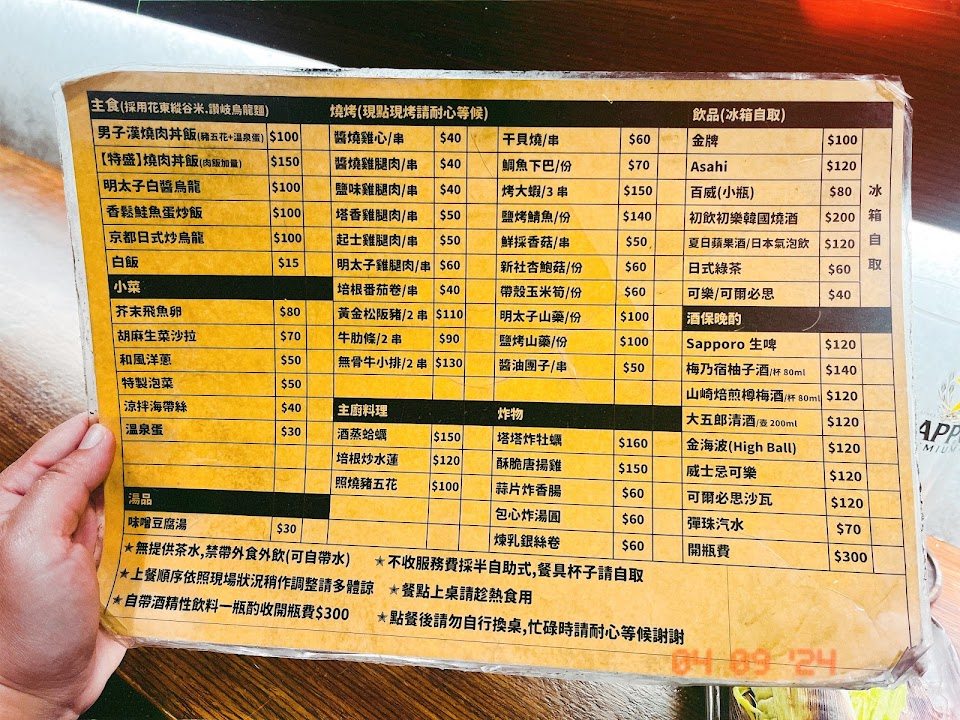 主食(採用花東縱谷米.讚岐烏龍麵)
男子漢燒肉丼飯(豬五花+溫泉蛋) $100
【特盛】燒肉丼飯(肉飯加量) $150
明太子白醬烏龍 $100
香鬆鮭魚蛋炒飯 $100
京都日式炒烏龍 $100
白飯 $15
小菜
芥末飛魚卵 $80
胡麻生菜沙拉 $70
和風洋蔥 $50
特製泡菜 $50
涼拌海帶絲 $40
溫泉蛋 $30
湯品
味噌豆腐湯 $30
燒烤(現點現烤請耐心等候)
醬燒雞心/串 $40
醬燒雞腿肉/串 $40
鹽味雞腿肉/串 $40
塔香雞腿肉/串 $50
起士雞腿肉/串 $50
明太子雞腿肉/串 $60
培根番茄卷/串 $40
黃金松阪豬/2串 $110
牛肋條/2串 $90
無骨牛小排/2串 $130
干貝燒/串 $60
鯛魚下巴/份 $70
烤大蝦/3串 $150
鹽烤鯖魚/份 $140
鮮採香菇/串 $50
新社杏鮑菇/份 $60
帶殼玉米筍/份 $60
明太子山藥/份 $100
鹽烤山藥/份 $100
醬油團子/串 $50
主廚料理
酒蒸蛤蠣 $150
培根炒水蓮 $120
照燒豬五花 $100
炸物
塔塔炸牡蠣 $160
酥脆唐揚雞 $150
蒜片炸香腸 $60
包心炸湯圓 $60
煉乳銀絲卷 $60
飲品(冰箱自取)
金牌 $100
Asahi $120
百威(小瓶) $80
初飲初樂韓國燒酒 $200
夏日蘋果酒/日本氣泡飲 $120
日式綠茶 $60
可樂/可爾必思 $40
冰箱自取
酒保晚酌
Sapporo 生啤 $120
梅乃宿柚子酒/杯 80ml $140
山崎焙煎樽梅酒/杯 80ml $120
大五郎清酒/壺 200ml $120
金海波(High Ball) $120
威士忌可樂 $120
可爾必思沙瓦 $120
彈珠汽水 $70
開瓶費 $300
★無提供茶水,禁帶外食外飲(可自帶水)
★不收服務費採半自助式,餐具杯子請自取
★上餐順序依照現場狀況稍作調整請多體諒
★餐點上桌請趁熱食用
★自帶酒精性飲料一瓶酌收開瓶費$300
★點餐後請勿自行換桌,忙碌時請耐心等候謝謝
04 09 '24